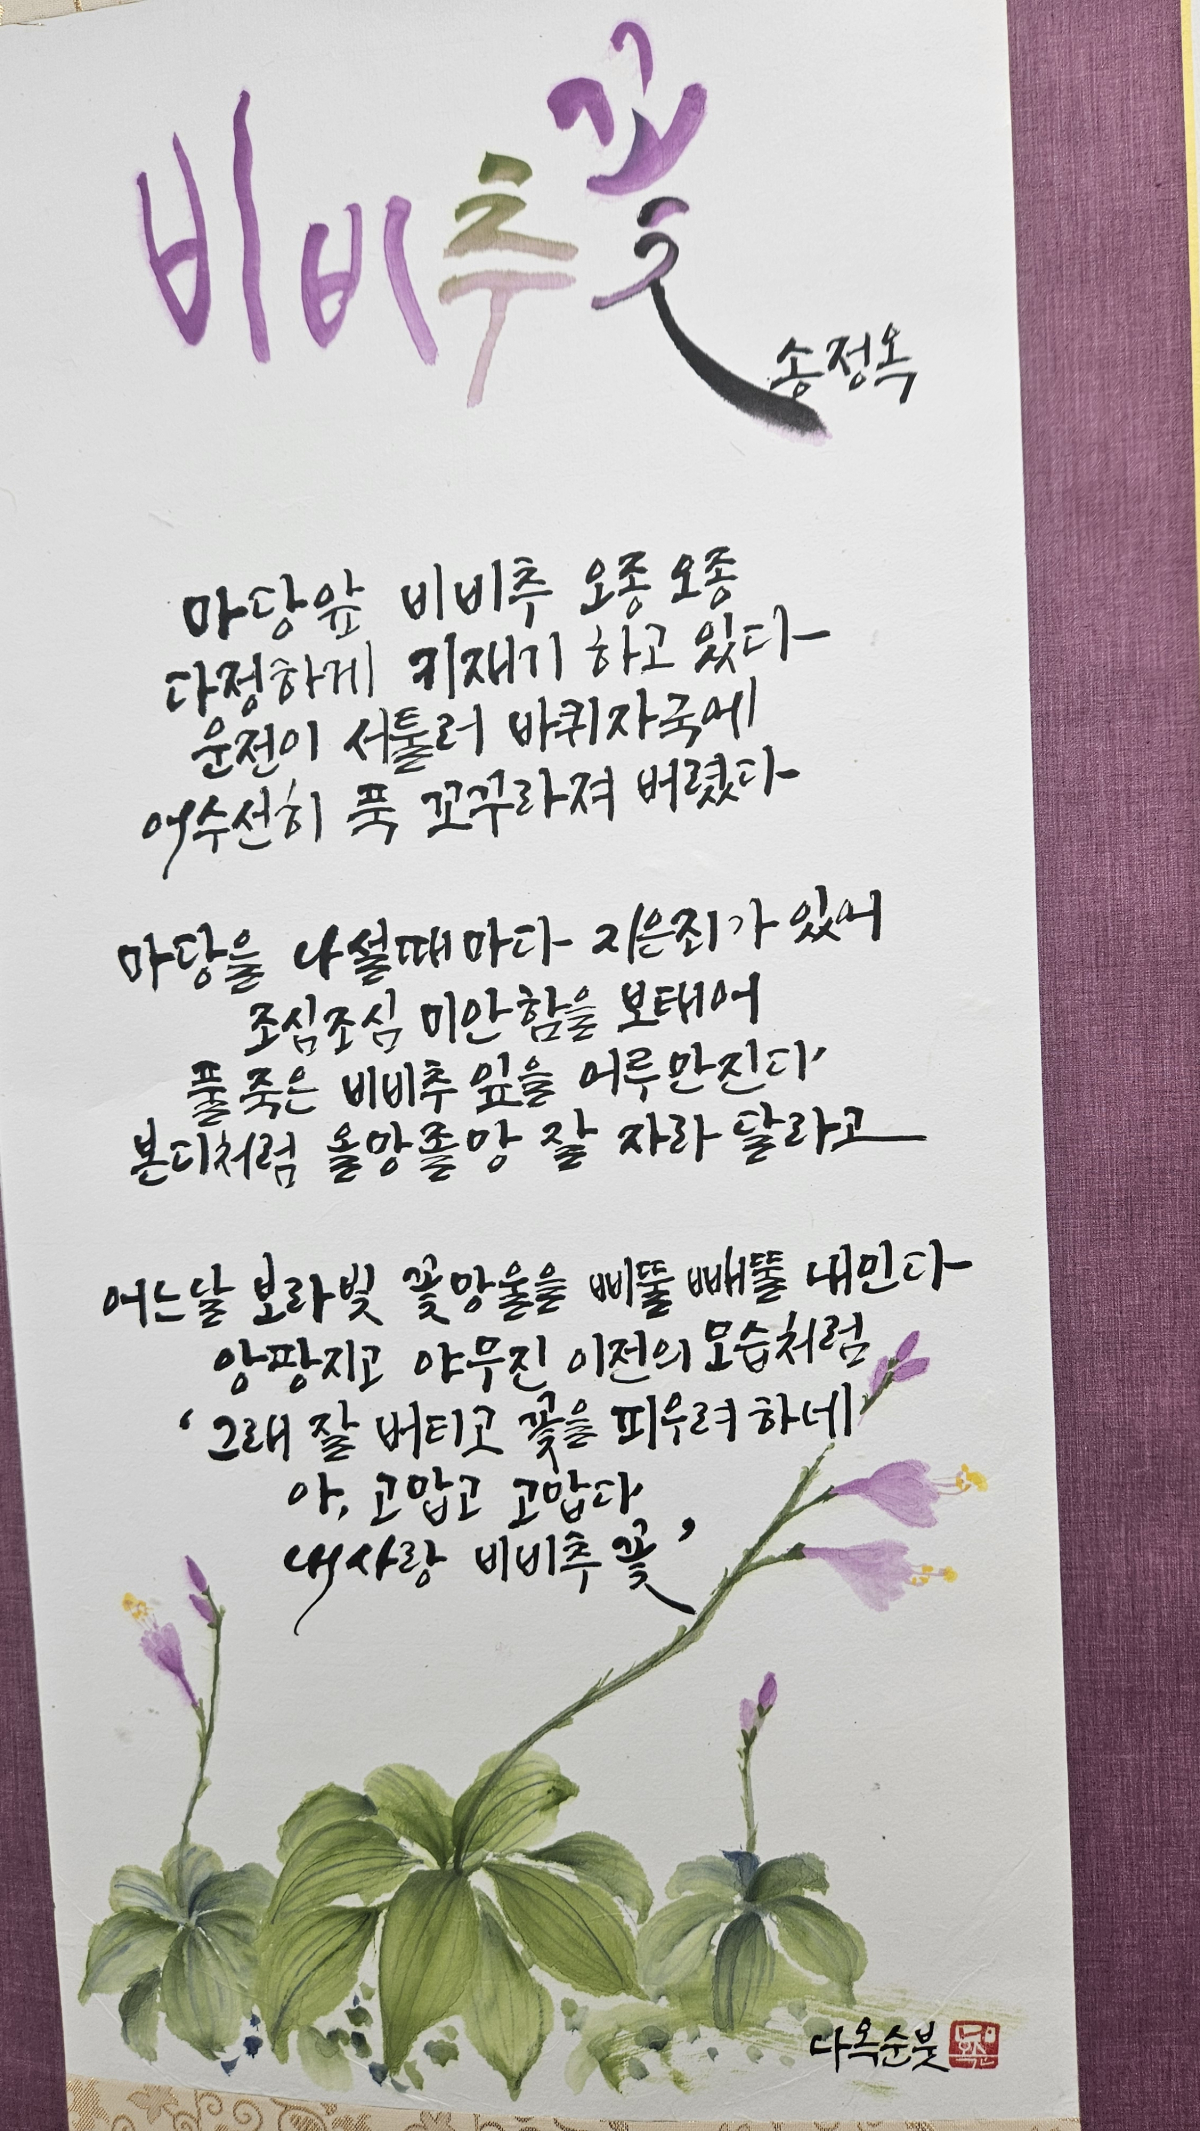 비비추꽃
송정옥
마당앞 비비추 오종오종
다정하게 키재기 하고 있다
운전이 서툴러 바퀴자국에
어수선히 푹 꼬꾸라져 버렸다
마당을 나설때마다 지은죄가 있어
조심조심 미안함을 보태어
풀죽은 비비추 잎을 어루만진다
본디처럼 올망졸망 잘 자라 달라고
어느날 보라빛 꽃망울을 삐뚤빼뚤 내민다
앙팡지고 야무진 이전의 모습처럼
'그래 잘 버티고 꽃을 피우려 하네
아, 고맙고 고맙다
내사랑 비비추 꽃'
다옥순붓